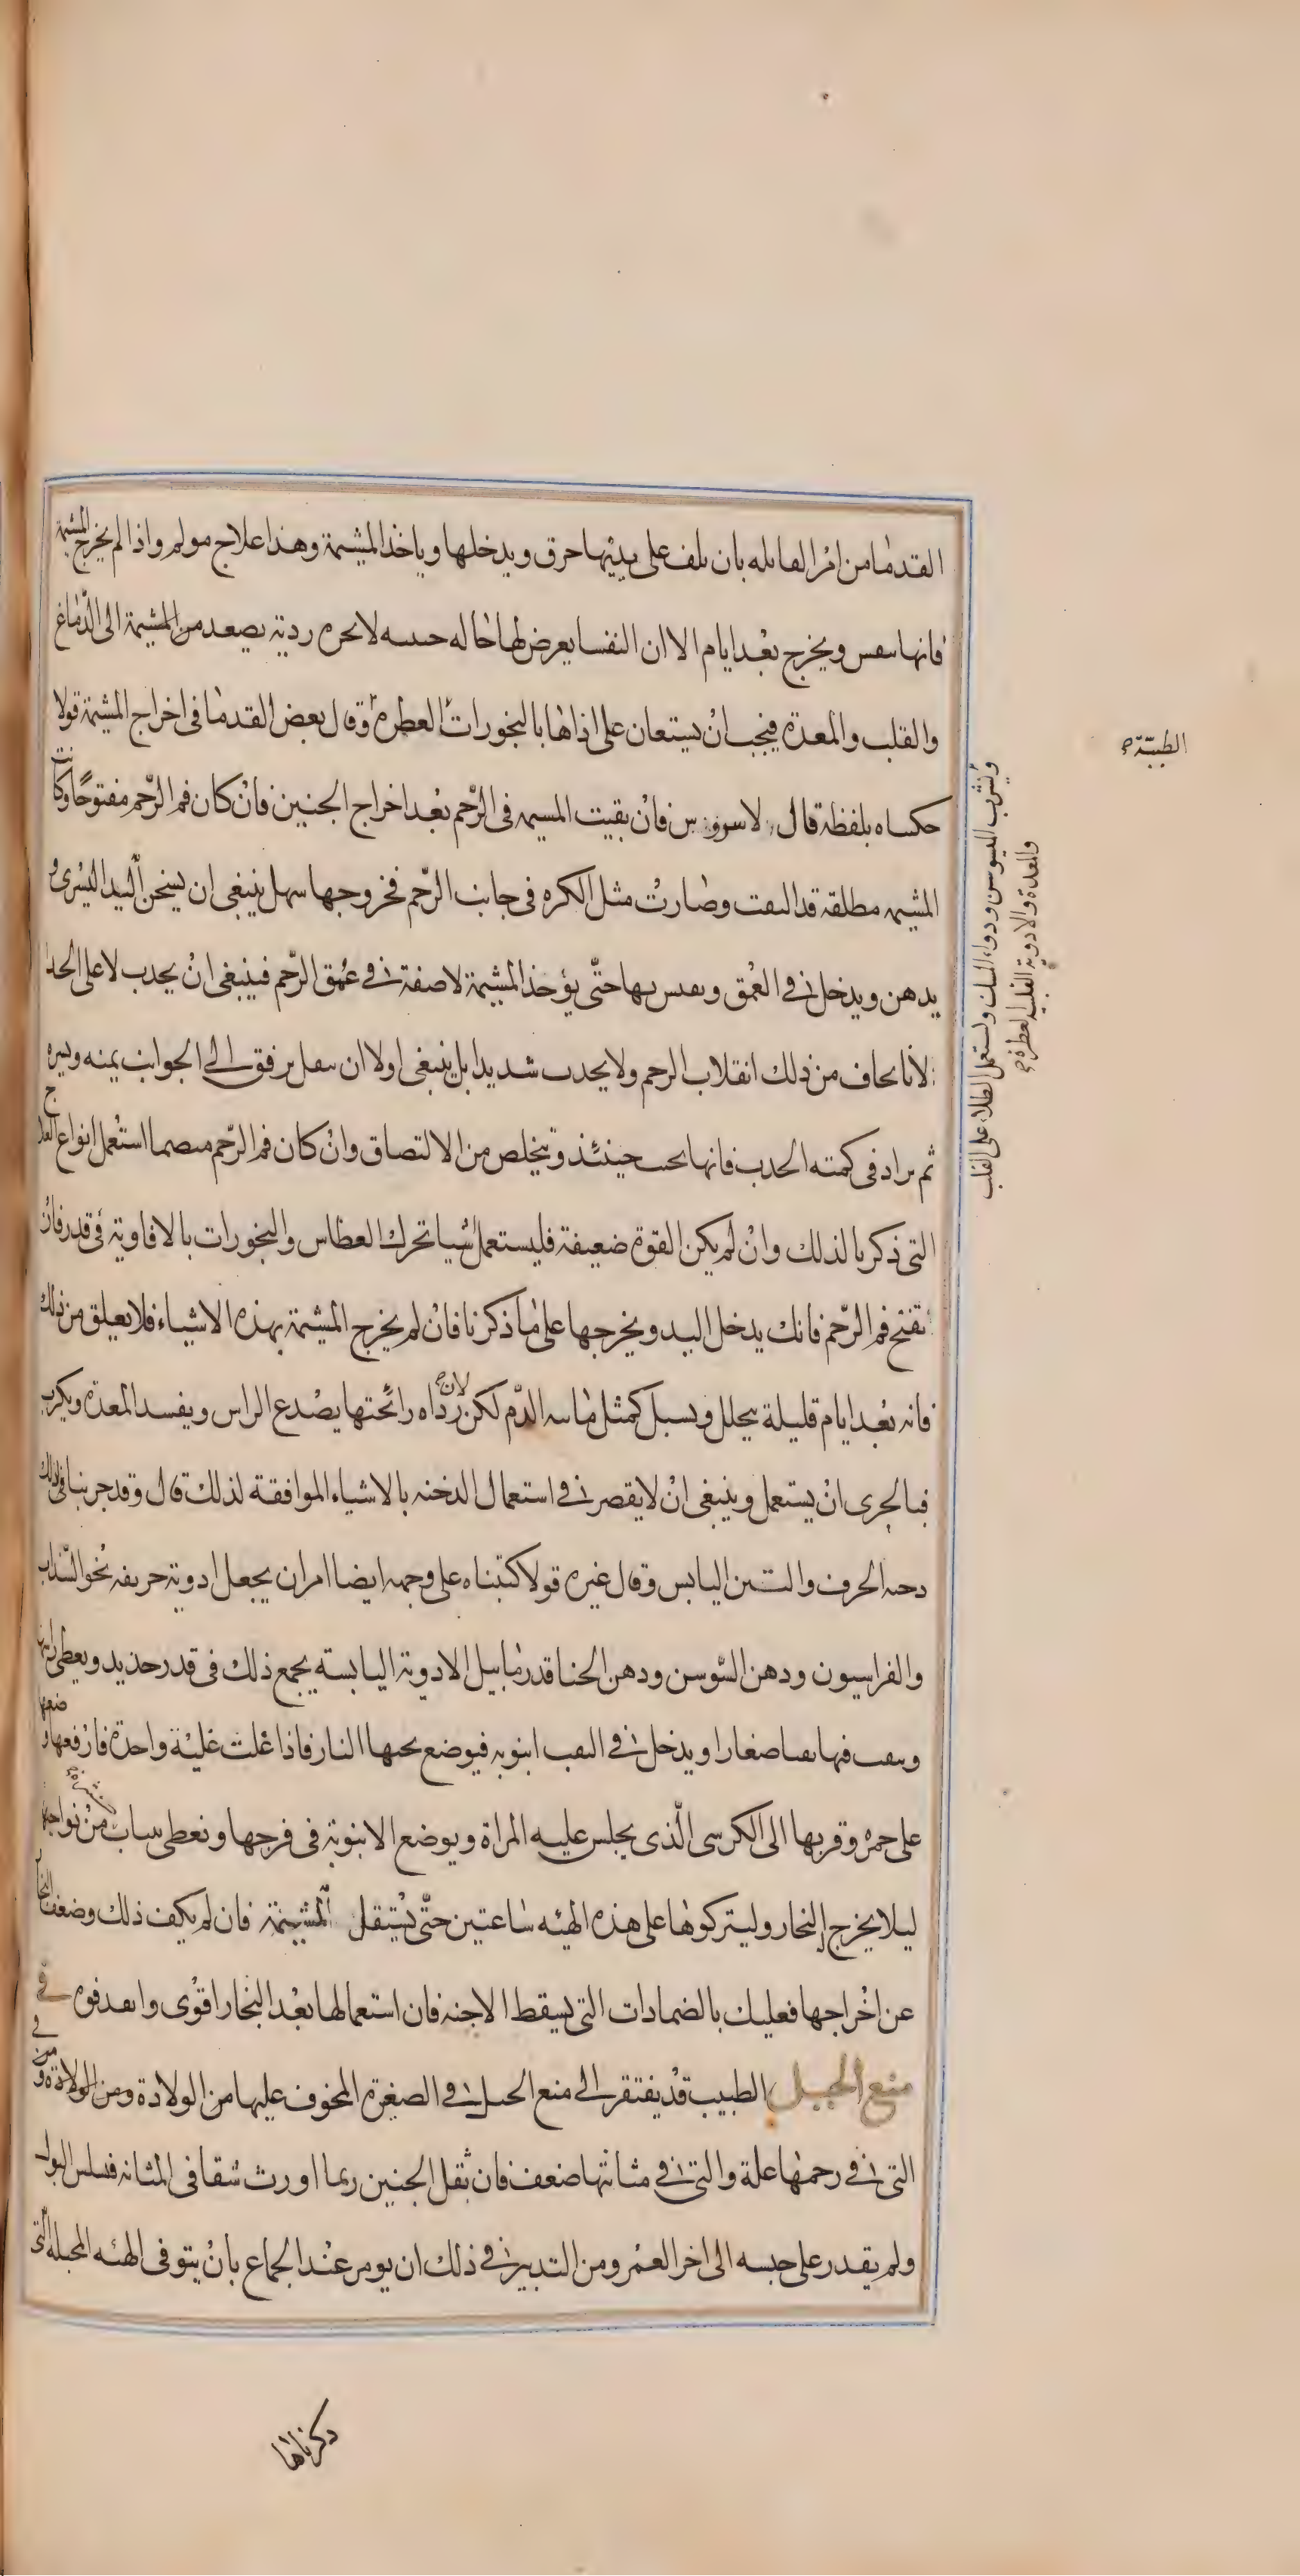 القدما من امر القابله بان يلف على يديها خرق ويدخلها وياخذ المشيمة وهذا علاج مولم واذا لم يخرج المشيمة
فانها تعفن ويخرج بعد ايام الا ان النفسا يعرض لها حاله خبيثه لابخره ردية يصعد من المشيمة الى الدماغ
والقلب والمعدة فيجب ان يستعان على اذاها بالبخورات العطرة وقال بعض القدما فى اخراج المشيمة قولا
حكيناه بلفظه قال فان بقيت المشيمه فى الرحم بعد اخراج الجنين فان كان فم الرحم مفتوحا وكانت
المشيمه مطلقة قد التفت وصارت مثل الكره فى جانب الرحم فخروجها سهل ينبغى ان يسخن اليد اليسرى و
يدهن ويدخل فى العمق ويفتش بها حتى يؤخذ المشيمة لاصقة فى عمق الرحم فينبغى ان يجذب لا على الحذا
لانا نخاف من ذلك انقلاب الرحم ولا يجذب شديدا بل ينبغى اولا ان ينقل برفق الى الجوانب يمنه ويسره
ثم يزاد فى كميته الجذب فانها تجيب حينئذ وتتخلص من الالتصاق وان كان فم الرحم منضما استعمل انواع العلاج
التى ذكرنا لذلك وان لم يكن القوة ضعيفة فليستعمل شيا تحرك العطاس والبخورات بالافاوية فى قدر فان
تفتح فم الرحم فانك يدخل اليد ويخرجها على ما ذكرنا فان لم يخرج المشيمة بهذه الاشياء فلا تعلق من ذلك
فانه بعد ايام قليلة يتحلل ويسيل كمثل مايه الدم لكن لان رداه رائحتها يصدع الراس ويفسد المعدة ويكرب
فبالحرى ان يستعمل وينبغى ان لا يقصر فى استعمال الدخنه بالاشياء الموافقة لذلك قال وقد جربنا فى ذلك
دخنه الحرف والتين اليابس وقال غيره قولا كتبناه على وجهه ايضا امر ان يجعل ادوية حريفه نحو السذاب
والفراسيون ودهن السوسن ودهن الحنا قدر ما يبل الادوية اليابسة يجمع ذلك فى قدر حديد ويعطى راسها
ويثقب فيها ثقبا صغارا ويدخل فى الثقب انبوبه فيوضع تحتها النار فاذا غلت غلية واحدة فارفعها وضعها
على جمره وقربها الى الكرسى الذى يجلس عليه المراة ويوضع الانبوبة فى فرجها وتغطى بثياب من نواحيها
ليلا يخرج البخار وليتركوها على هذه الهيئه ساعتين حتى يستقل المشيمة فان لم يكف ذلك وضعف البخار
عن اخراجها فعليك بالضمادات التى يسقط الاجنه فان استعمالها بعد البخار اقوى وانفذ قوه فى
منع الحبل الطبيب قد يفتقر الى منع الحبل فى الصغيرة المخوف عليها من الولادة ومن الولادة و
التى فى رحمها علة والتى فى مثانتها ضعف فان ثقل الجنين ربما اورث شقا فى المثانه فسلس البول
ولم يقدر على حبسه الى اخر العمر ومن التدبير فى ذلك ان يومر عند الجماع بان يتوقى الهيئه المحبلة التى
ذكرناها
الطيبة
ويشرب الميسوسن ودواء المسك ويستعمل الطلاء على القلب
والمعدة والادوية القلبية العطرة